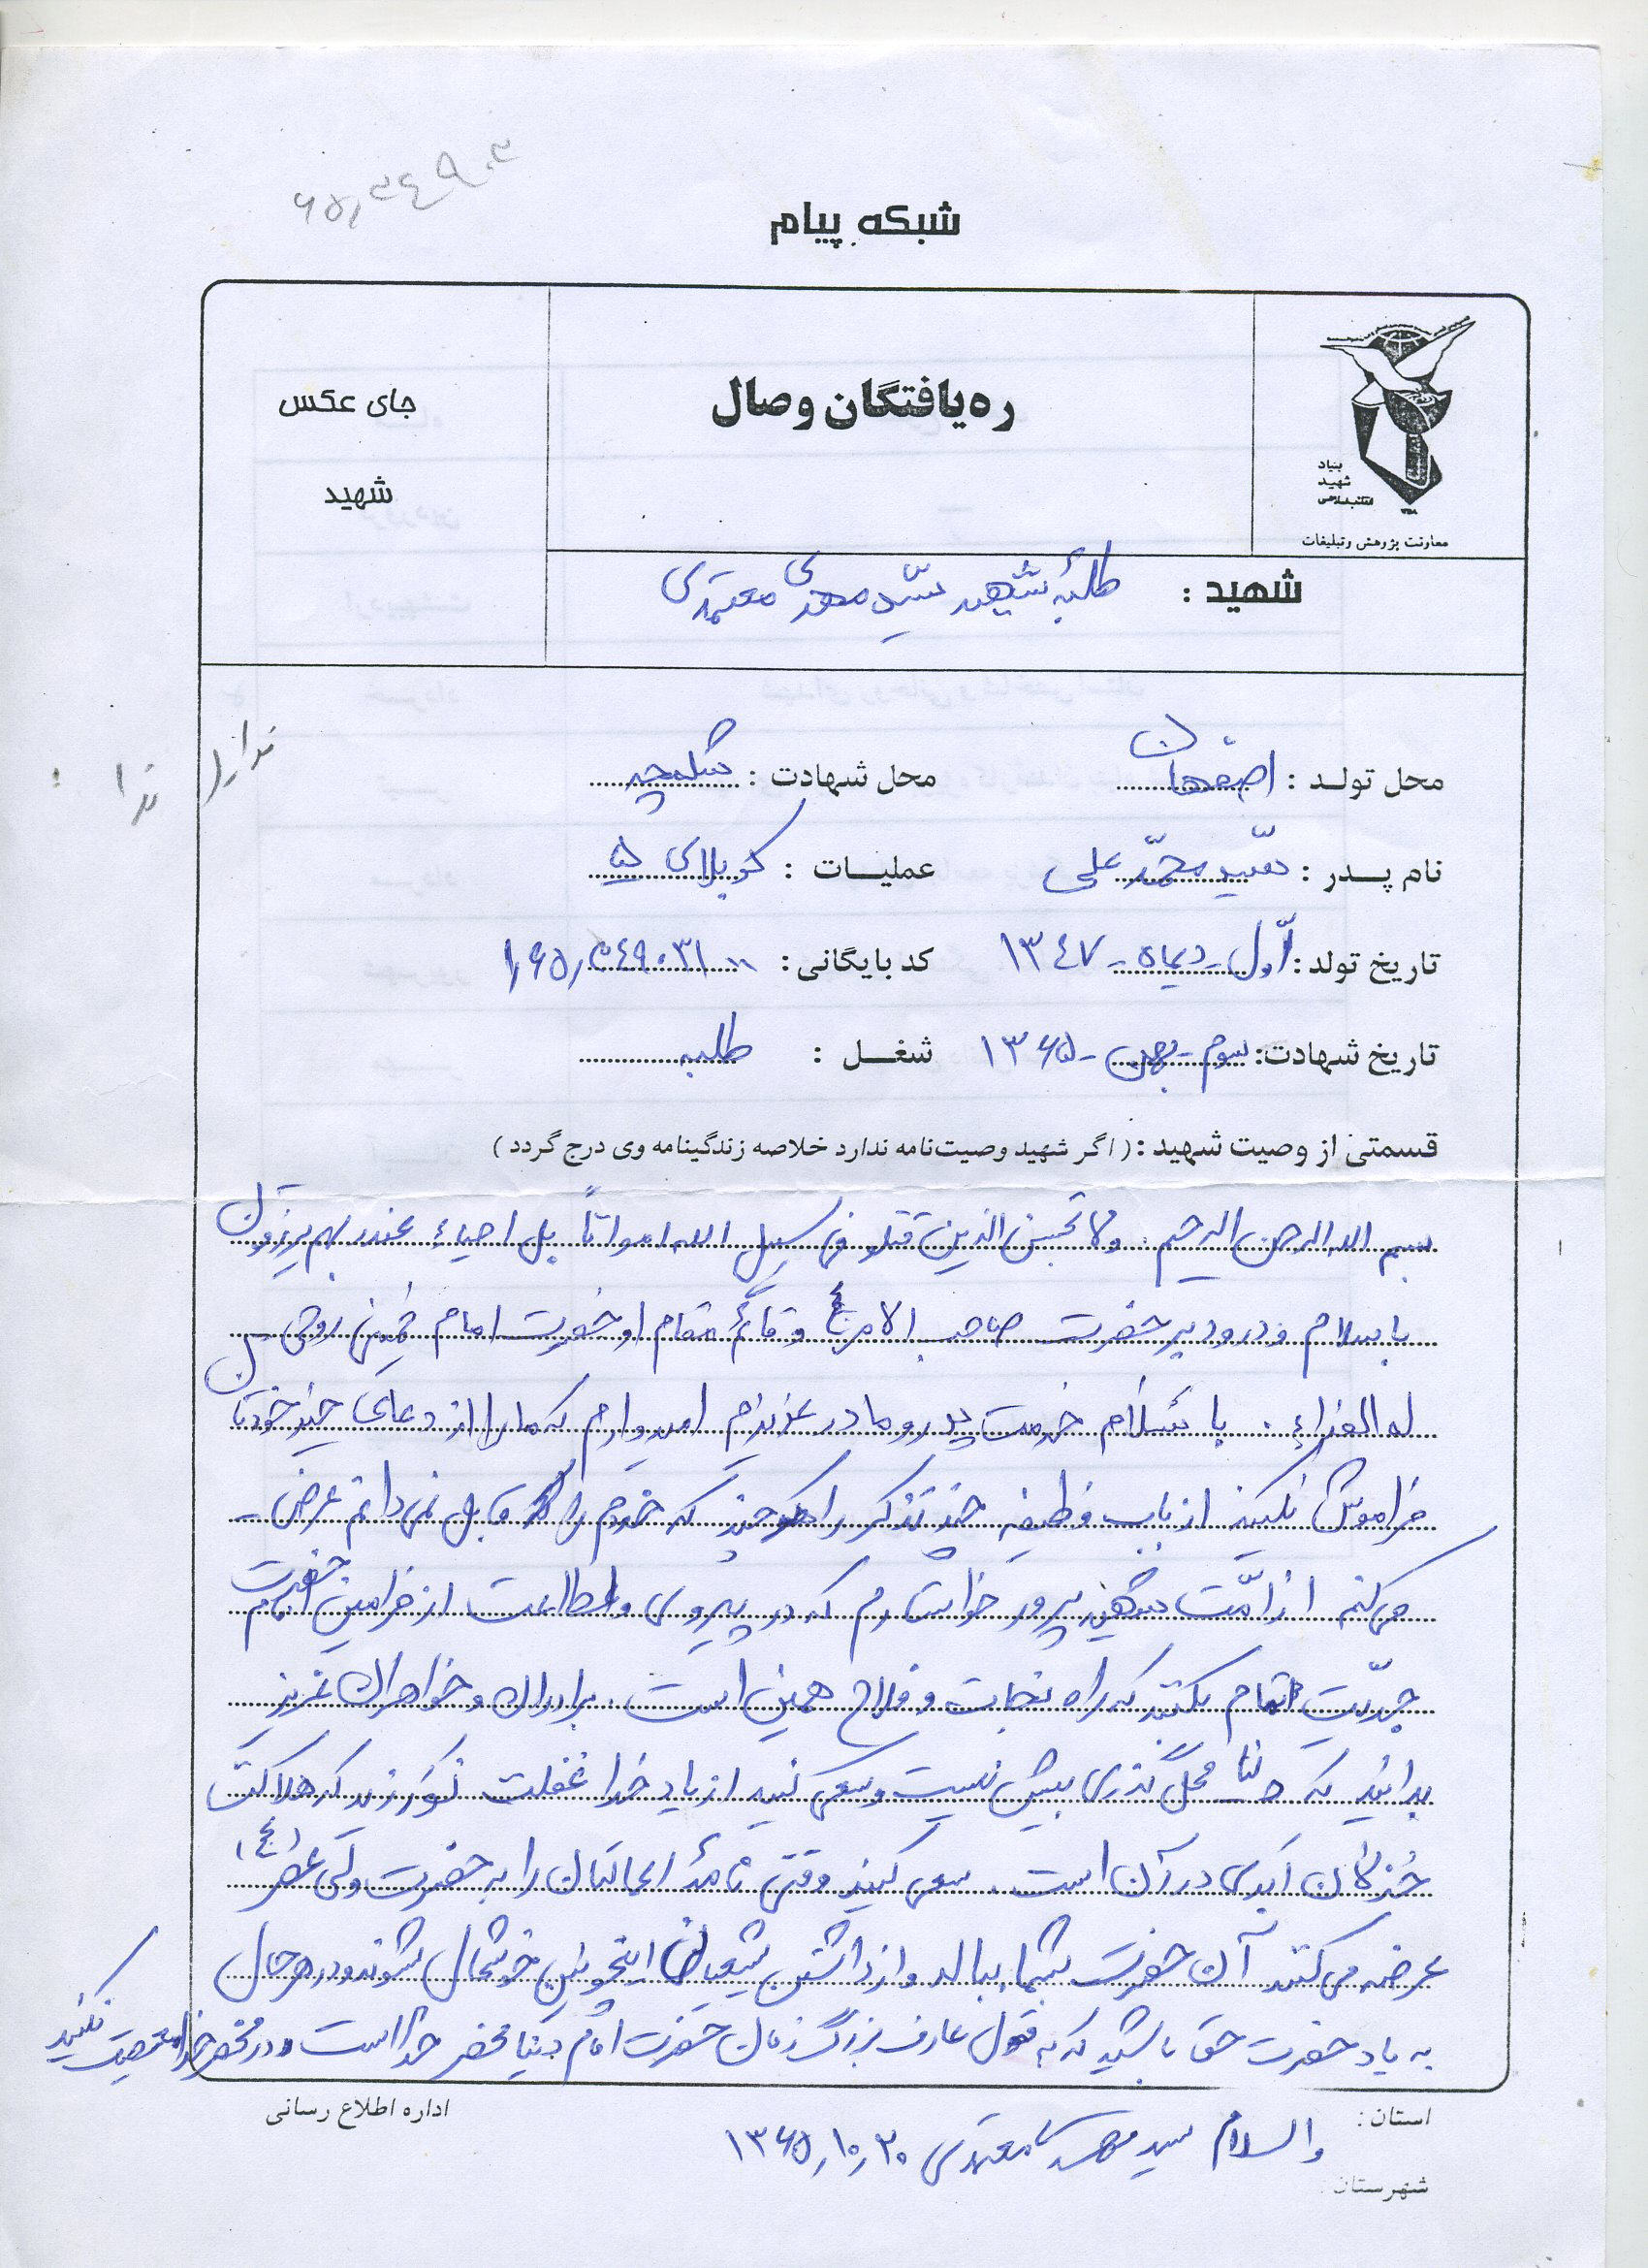 ۶۵٫۳۴۹۰۳
شبکه پیام
ره‌یافتگان وصال
جای عکس
شهید
بنیاد
شهید
انقلاب اسلامی
معاونت پژوهش و تبلیغات
شهید : طلبۀ شهید سیّد مهدی معتمدی
محل تولـد : اصفهان محل شهادت : شلمچه
نام پـدر : سیّد محمّد علی عملیـات : کربلای ۵
تاریخ تولد : اوّل - دیماه - ۱۳٤۷ کد بایگانی :
تاریخ شهادت : سوم - بهمن - ۱۳۶۵ شغـل : طلبه
قسمتی از وصیت شهید : ( اگر شهید وصیت‌نامه ندارد خلاصه زندگینامه وی درج گردد )
بسم الله الرحمن الرحیم . ولا تحسبن الذین قتلو فی سبیل الله امواتاً بل احیاء عند ربهم یرزقون
با سلام و درود بر حضرت صاحب الامر (ع) و قائم مقام او حضرت امام خمینی روحی
له الفداء . با سلام خدمت پدر و مادر عزیزم امیدوارم که ما را از دعای خیر خودتان
فراموش نکنید از باب وظیفه چند تذکر را هر چند که خودم را قابل نمی دانم عرض -
می کنم از امّت شهید پرور خواستارم که در پیروی و اطاعت از فرامین حضرت امام
جدّیت تمام بکنند که راه نجات و فلاح همین است . برادران و خواهران عزیز
بدانید که دنیا محل گذری بیش نیست و سعی کنید از یاد خدا غفلت نورزید که هلاکت
خذلان ابدی در آن است . سعی کنید وقتی نامۀ اعمالتان را به حضرت ولی عصر (ع)
عرضه می کنند آن حضرت بشما ببالد و از داشتن شیعیان اینچونین خوشحال شوند و در هر حال
به یاد حضرت حق باشید که به قول عارف بزرگ زمان حضرت امام دنیا محضر خدا است در محضر خدا معصیت نکنید
اداره اطلاع رسانی
استان :
والسلام سید مهدی معتمدی ۱۳۶۵٫۱۰٫۳۰
شهرستان :